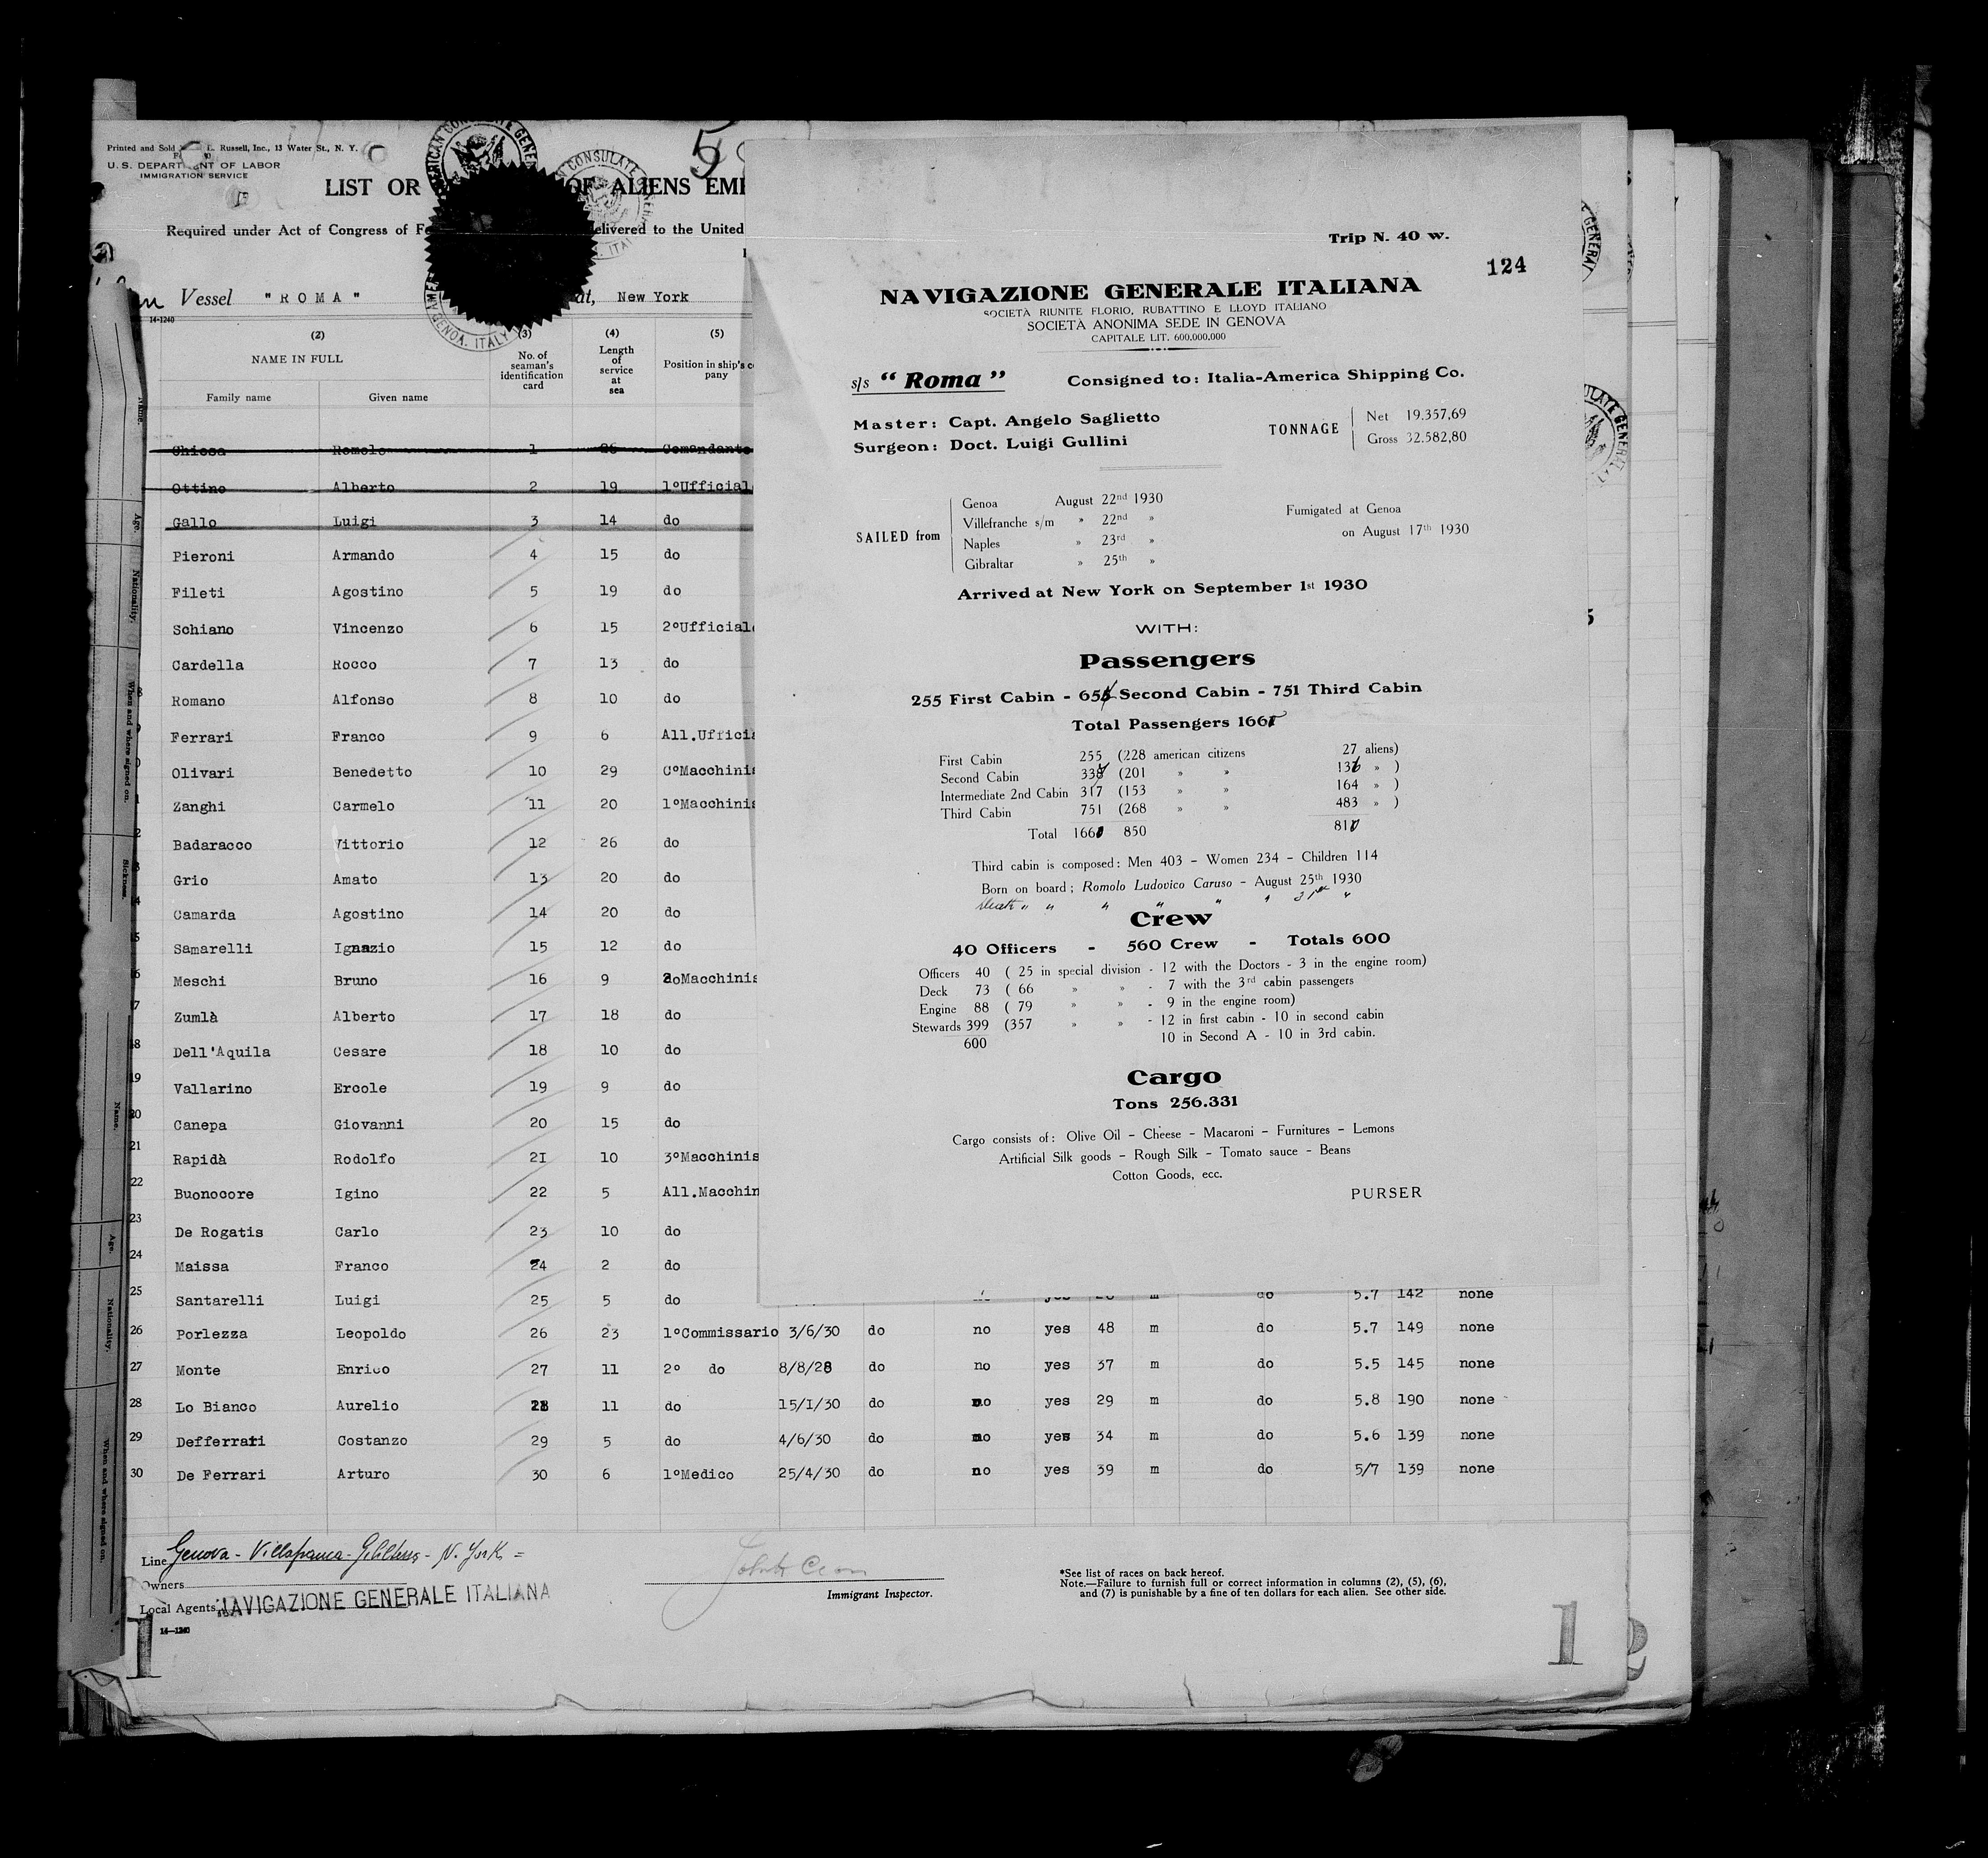 Printed and Sold Russell, Inc., 13 Water St., N. Y.
U.S. DEPARTMENT OF LABOR
IMMIGRATION SERVICE
LIST OR OF ALIENS
Required under Act of Congress of delivered to the United
Vessel "ROMA" at, New York
14-1240
(2) (3) (4) (5)
NAME IN FULL No. of seaman's identification card Length of service at sea Position in ship's
pany
Family name Given name
Chiosa Romolo 1 26 Comandante
Ottino Alberto 2 19 1°Ufficial
Gallo Luigi 3 14 do
Pieroni Armando 4 15 do
Fileti Agostino 5 19 do
Schiano Vincenzo 6 15 2°Ufficial
Cardella Rocco 7 13 do
Romano Alfonso 8 10 do
Ferrari Franco 9 6 All.Uffici
Olivari Benedetto 10 29 C°Macchini
Zanghi Carmelo 11 20 1°Macchinis
Badaracco Vittorio 12 26 do
Grio Amato 13 20 do
Camarda Agostino 14 20 do
Samarelli Ignazio 15 12 do
Meschi Bruno 16 9 2oMacchinis
Zumlà Alberto 17 18 do
Dell'Aquila Cesare 18 10 do
Vallarino Ercole 19 9 do
20 Canepa Giovanni 20 15 do
21 Rapidà Rodolfo 21 10 3°Macchinis
22 Buonocore Igino 22 5 All.Macchin
23 De Rogatis Carlo 23 10 do
24 Maissa Franco 24 2 do
25 Santarelli Luigi 25 5 do do 5.7 142 none
26 Porlezza Leopoldo 26 23 1°Commissario 3/6/30 do no yes 48 m do 5.7 149 none
27 Monte Enrico 27 11 2° do 8/8/28 do no yes 37 m do 5.5 145 none
28 Lo Bianco Aurelio 28 11 do 15/1/30 do no yes 29 m do 5.8 190 none
29 Defferrari Costanzo 29 5 do 4/6/30 do no yes 34 m do 5.6 139 none
30 De Ferrari Arturo 30 6 1°Medico 25/4/30 do no yes 39 m do 5/7 139 none
Line Genova - Villafranca - - N. York =
Owners
Local Agents NAVIGAZIONE GENERALE ITALIANA
14-1240
Immigrant Inspector.
*See list of races on back hereof.
Note.—Failure to furnish full or correct information in columns (2), (5), (6),
and (7) is punishable by a fine of ten dollars for each alien. See other side.
1 1 2
Trip N. 40 w.
124
NAVIGAZIONE GENERALE ITALIANA
SOCIETÀ RIUNITE FLORIO, RUBATTINO E LLOYD ITALIANO
SOCIETÀ ANONIMA SEDE IN GENOVA
CAPITALE LIT. 600.000.000
s/s "Roma" Consigned to: Italia-America Shipping Co.
Master: Capt. Angelo Saglietto
Surgeon: Doct. Luigi Gullini
TONNAGE Net 19.357,69
Gross 32.582,80
SAILED from
Genoa August 22nd 1930
Villefranche s/m » 22nd »
Naples » 23rd »
Gibraltar » 25th »
Fumigated at Genoa
on August 17th 1930
Arrived at New York on September 1st 1930
WITH:
Passengers
255 First Cabin - 655 Second Cabin - 751 Third Cabin
Total Passengers 1661
First Cabin 255 (228 american citizens 27 aliens)
Second Cabin 338 (201 » » 136 » )
Intermediate 2nd Cabin 317 (153 » » 164 » )
Third Cabin 751 (268 » » 483 » )
Total 1660 850 810
Third cabin is composed: Men 403 - Women 234 - Children 114
Born on board; Romolo Ludovico Caruso - August 25th 1930
Death " " " " " " 31st "
Crew
40 Officers - 560 Crew - Totals 600
Officers 40 ( 25 in special division - 12 with the Doctors - 3 in the engine room)
Deck 73 ( 66 » » - 7 with the 3rd cabin passengers
Engine 88 ( 79 » » - 9 in the engine room)
Stewards 399 (357 » » - 12 in first cabin - 10 in second cabin
10 in Second A - 10 in 3rd cabin.
600
Cargo
Tons 256.331
Cargo consists of: Olive Oil - Cheese - Macaroni - Furnitures - Lemons
Artificial Silk goods - Rough Silk - Tomato sauce - Beans
Cotton Goods, ecc.
PURSER